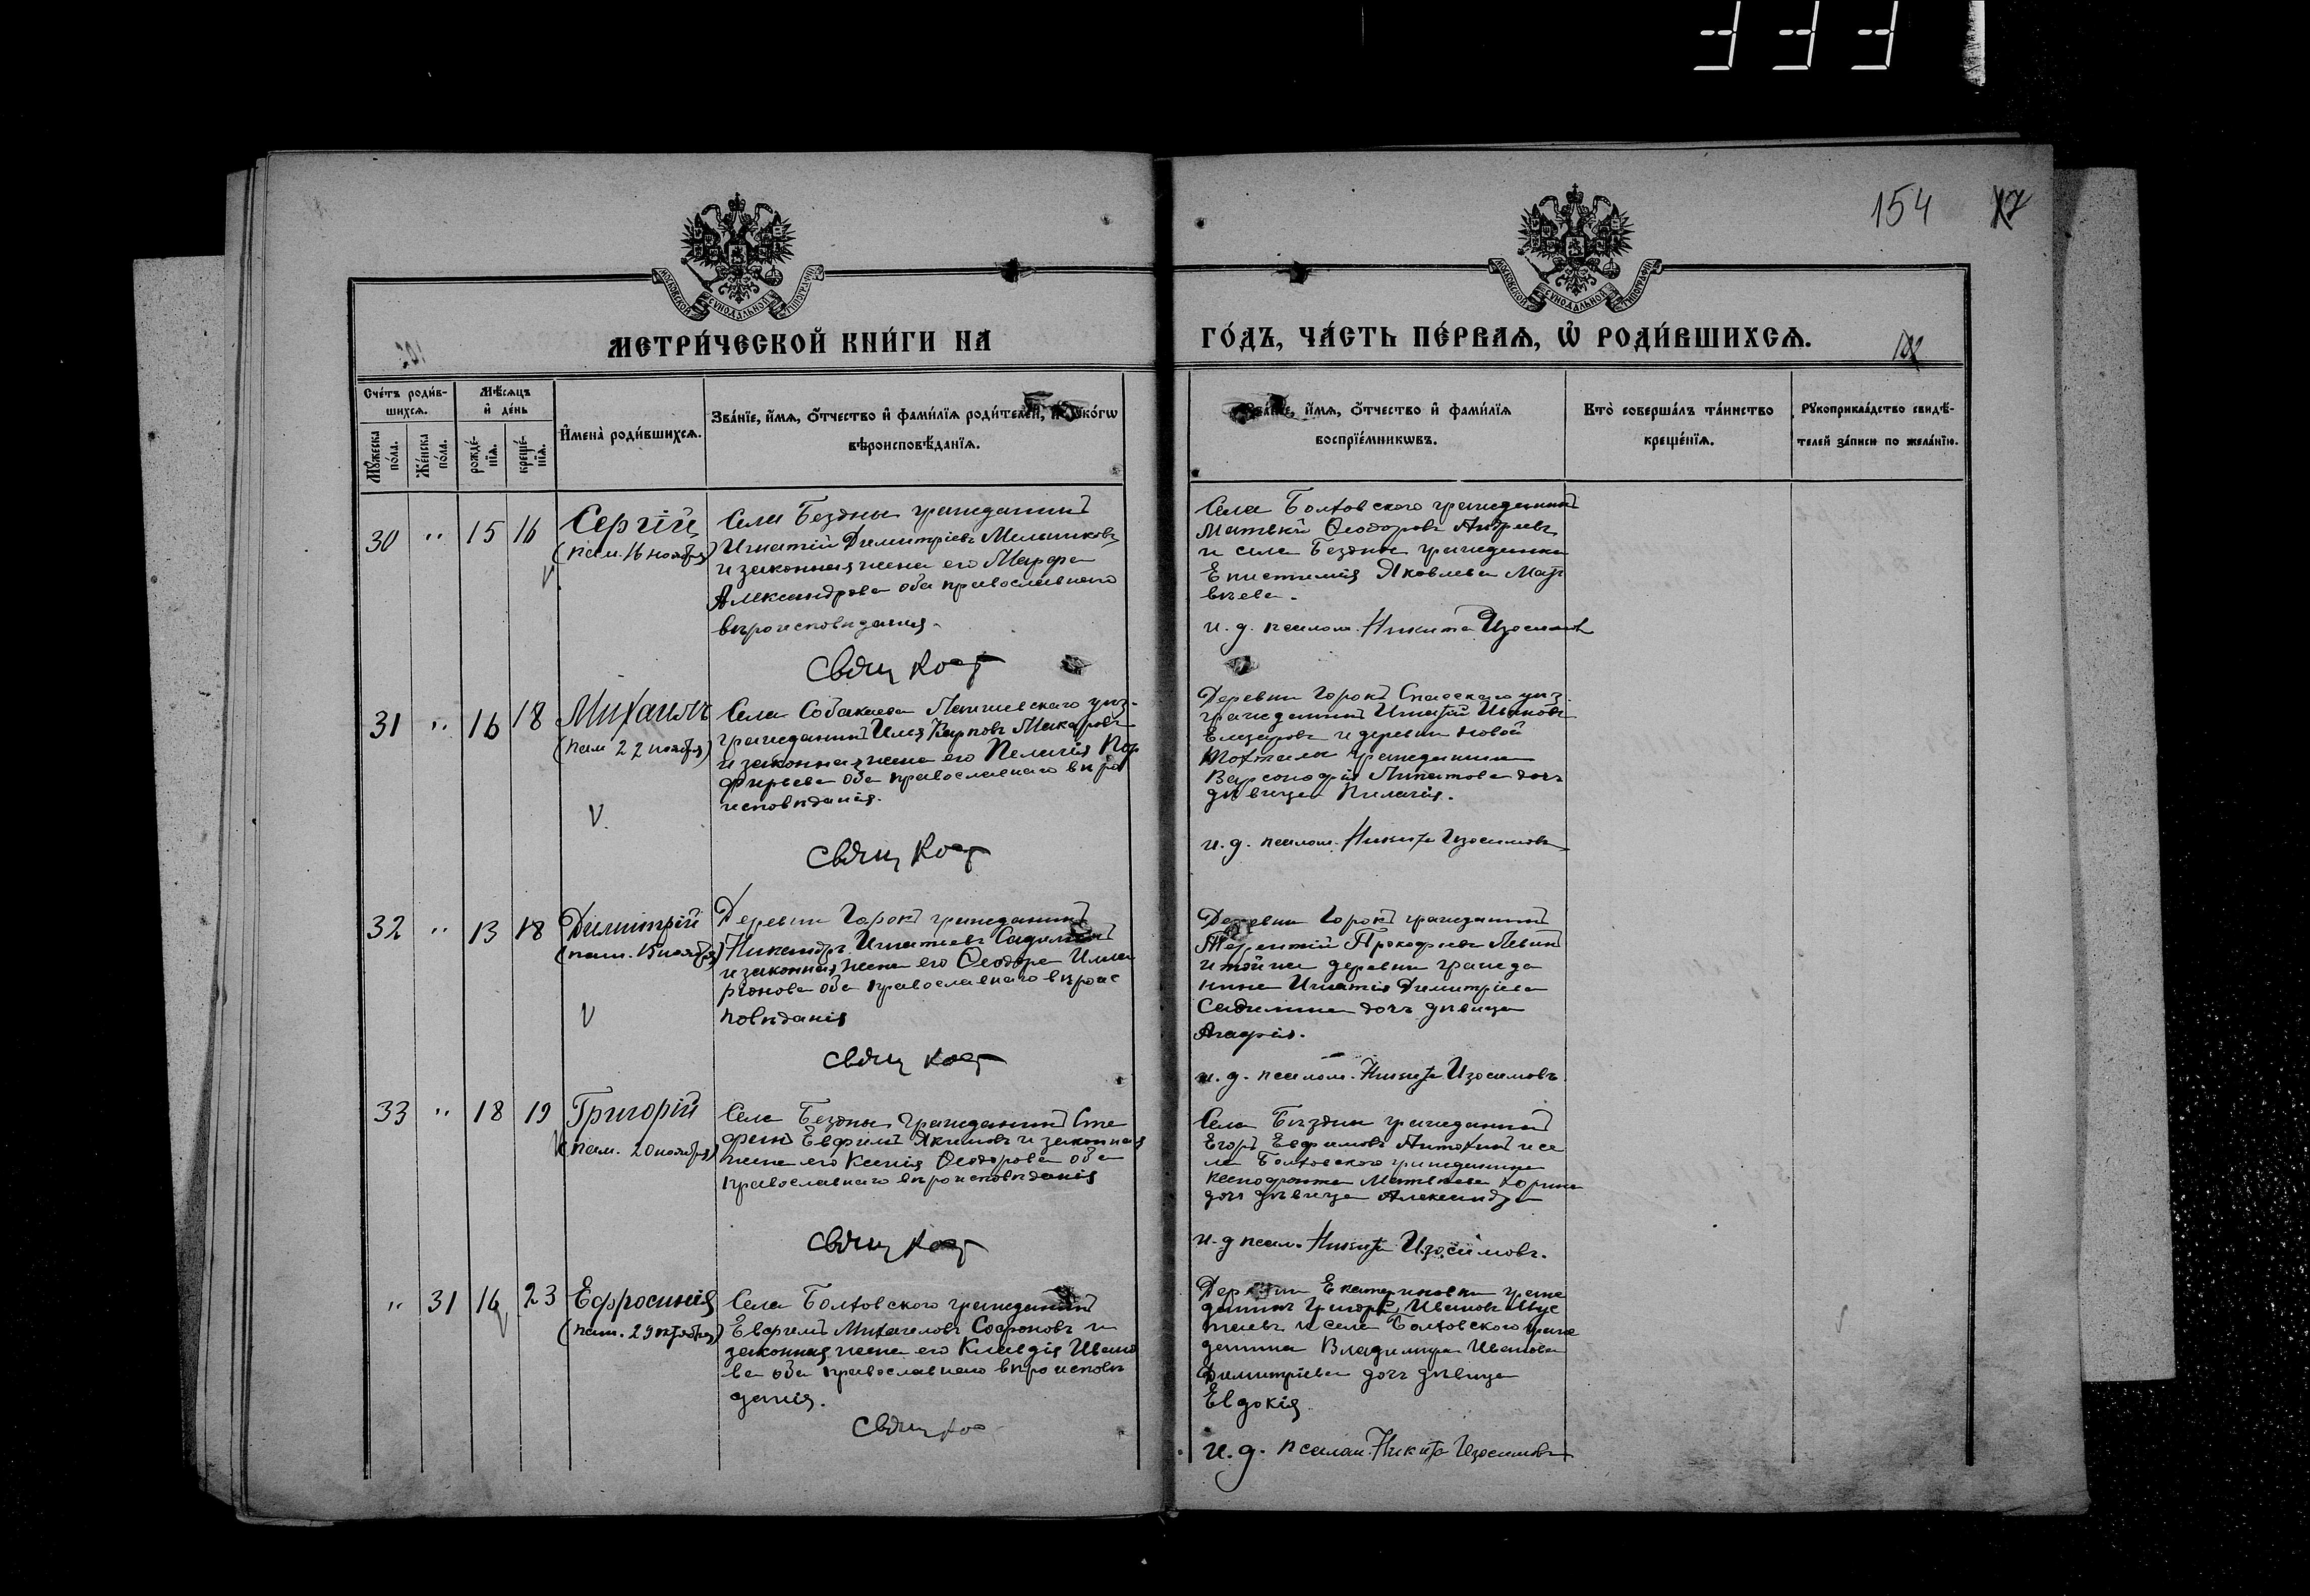 333
154
МОСКОВСКОЙ СѴНОДАЛЬНОЙ ТИПОГРАФІИ
МОСКОВСКОЙ СѴНОДАЛЬНОЙ ТИПОГРАФІИ
МЕТРИ́ЧЕСКОЙ КНИ́ГИ НА
ГО́ДЪ, ЧА́СТЬ ПЕ́РВАѦ, Ѡ҆ РОДИ́ВШИХСѦ.
102
Сче́тъ роди́в-
шихсѧ.
Мѣ́сѧцъ
и҆ де́нь
Мꙋ́жеска
по́ла.
Же́нска
по́ла.
рожде́-
нїѧ.
креще́-
нїѧ.
И҆мена̀ роди́вшихсѧ.
Зва́нїе, и҆́мѧ, ѻ҆́тчество и҆ фами́лїѧ роди́телей, и҆ како́гѡ
вѣроисповѣ́данїѧ.
Зва́нїе, и҆́мѧ, ѻ҆́тчество и҆ фами́лїѧ
воспрїе́мникѡвъ.
Кто̀ соверша́лъ та́инство
креще́нїѧ.
Рꙋкоприкла́дство свидѣ́-
телей за́писи по жела́нїю.
30 " 15 16 Сергій
(пам. 16 ноября)
Села Бездны гражданинъ
Игнатій Димитріевъ Мельниковъ
и законная жена его Марфа
Александрова оба православнаго
вѣроисповѣданія.
Свящ
Села Болховского гражданинъ
Матвѣй Ѳеодоровъ Андреевъ
и села Бездны гражданка
Епистимія Яковлева Мат
вѣева.
и. д. псалом. Никита Изосимовъ
31 " 16 18 Михаилъ
(пам 22 ноября)
Села Собакаева Лаишевскаго уѣз.
гражданинъ Илія Карповъ Макаровъ
и законная жена его Пелагія Пор
фирьева оба православнаго вѣро
исповѣданія.
Свящ
Деревни Горокъ Спасскаго уѣз.
гражданинъ Игнатій Ивановъ
Елизаровъ и деревни Новой
гражданина
Варсонофія дочь
дѣвица Пелагія.
и. д. псалом. Никита Изосимовъ
32 " 13 18 Димитрій
(пам. 15 ноября)
Деревни Горокъ гражданинъ
Никандръ Игнатіевъ
и законная жена его Ѳеодора Илла
ріонова оба православнаго вѣроис
повѣданія
Свящ
Деревни Горокъ гражданинъ
Терентій Прокофіевъ Левинъ
и той же деревни гражда
нина Игнатія Димитріева
дочь дѣвица
Агафія.
и. д. псалом. Никита Изосимовъ
33 " 18 19 Григорій
(пам. 20 ноября)
Села Бездны гражданинъ Сте
фанъ Евфимъ Якимовъ и законная
жена его Ксенія Ѳеодорова оба
православнаго вѣроисповѣданія
Свящ
Села Бездны гражданинъ
Егоръ Евфимовъ Антохинъ и се
ла Болховского гражданина
Ксенофонта Матвѣева
дочь дѣвица Александра
и. д псал. Никита Изосимовъ.
" 31 16 23 Ефросинія
(пам. 29 октября)
Села Болховского гражданинъ
Михаиловъ Софроновъ и
законная жена его Клавдія Ивано
ва оба православнаго вѣроисповѣ
данія.
Свящ
Деревни Екатериновки граж
данинъ Григорій Ивановъ
и села Болховского граж
данина Владимира Иванова
Димитріева дочь дѣвица
Евдокія
и. д. псалом. Никита Изосимовъ